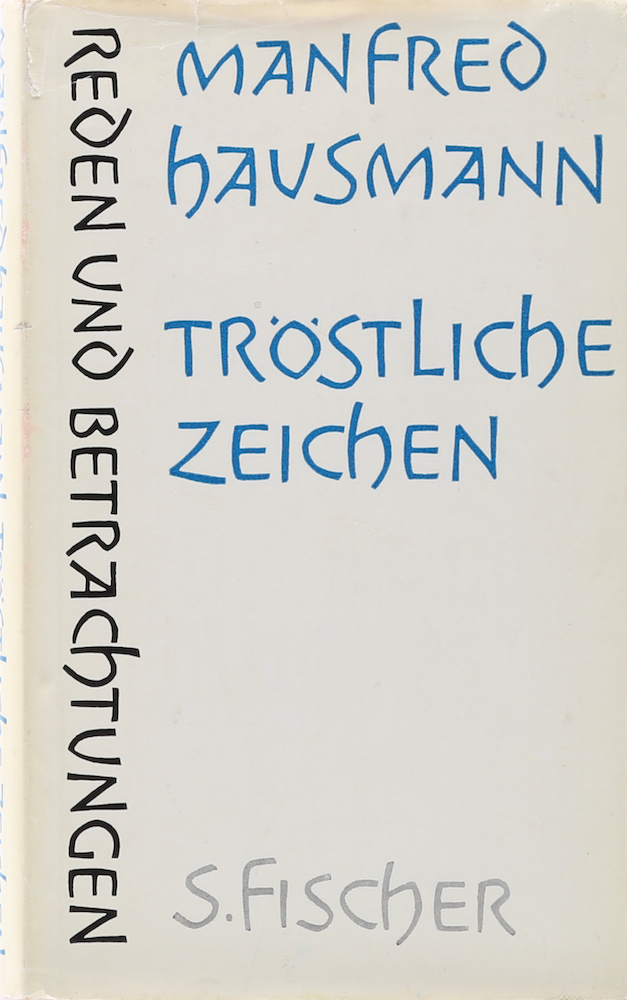 MANFRED
HAUSMANN
TRÖSTLICHE
ZEICHEN
REDEN UND BETRACHTUNGEN
S. FISCHER